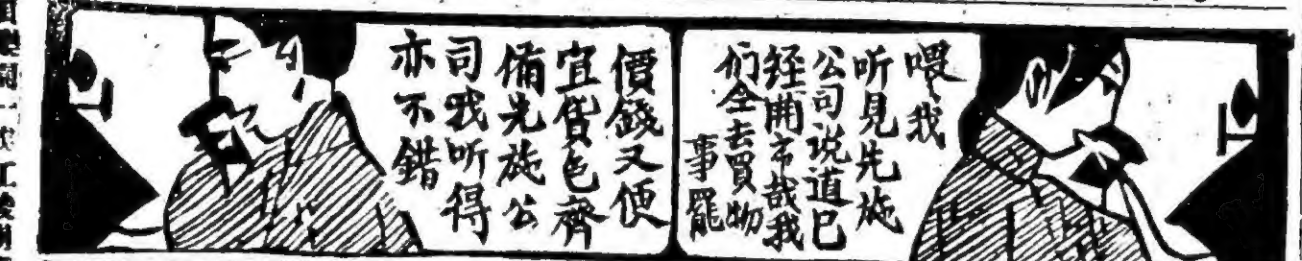 喂我
听見先施
公司说道已
経開市哉我
们仝去買物
事罷
價錢又便
宜貨色齊
備先施公
司我听得
亦不錯